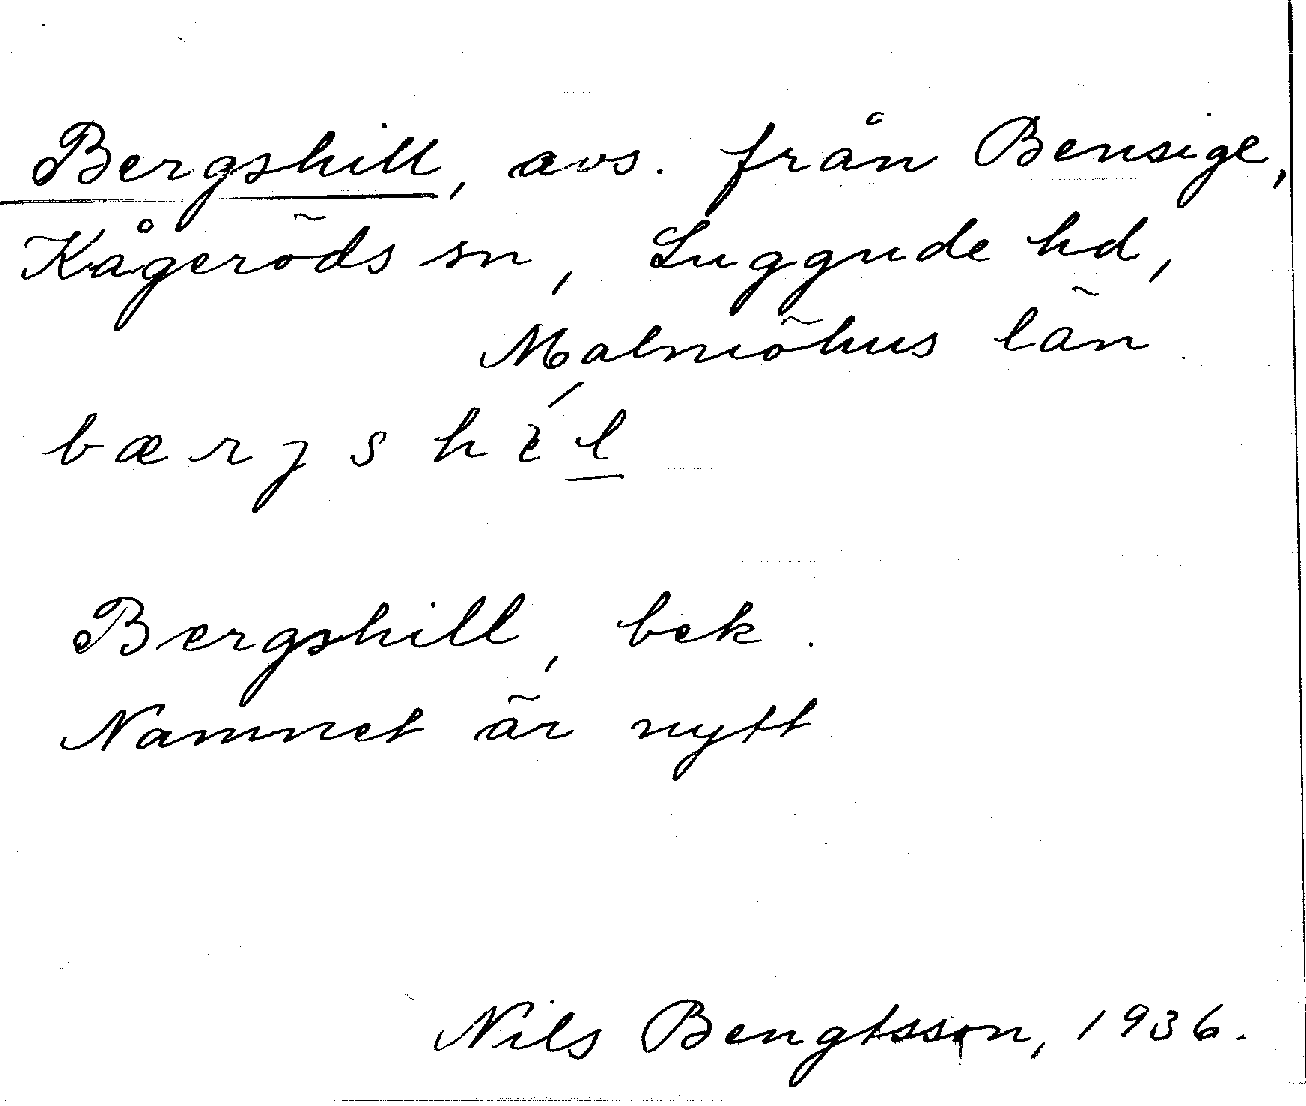 Bergshill, avs. från Bensige,
Kågeröds sn, Luggude hd,
Malmöhus län
bærjshíl
Bergshill, bek.
Namnet är nytt
Nils Bengtsson, 1936.